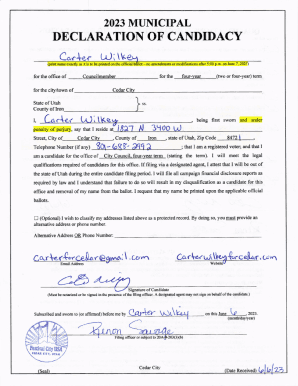 2023 MUNICIPAL
DECLARATION OF CANDIDACY
Carter Wilkey
(print name exactly as it is to be printed on the official ballot - no amendments or modifications after 5:00 p.m. on June 7, 2023)
for the office of Councilmember for the four-year (two or four-year) term
for the city/town of Cedar City
State of Utah
County of Iron } ss.
I, Carter Wilkey, being first sworn and under
penalty of perjury, say that I reside at 1827 N 3400 W
Street, City of Cedar City County of Iron, state of Utah, Zip Code 84721,
Telephone Number (if any) 801-688-2192; that I am a registered voter, and that I
am a candidate for the office of City Council, four-year term (stating the term). I will meet the legal
qualifications required of candidates for this office. If filing via a designated agent, I attest that I will be out of
the state of Utah during the entire candidate filing period. I will file all campaign financial disclosure reports as
required by law and I understand that failure to do so will result in my disqualification as a candidate for this
office and removal of my name from the ballot. I request that my name be printed upon the applicable official
ballots.
(Optional) I wish to classify my addresses listed above as a protected record. By doing so, you must provide an
alternative address or phone number.
Alternative Address OR Phone Number:
carterforcedar@gmail.com carterwilkeyforcedar.com
Email Address Website
Signature of Candidate
(Must be notarized or be signed in the presence of the filing officer. A designated agent may not sign on behalf of the candidate.)
Subscribed and sworn to (or affirmed) before me by Carter Wilkey on this June 6, 2023.
(month/day/year)
Renon Savage
Festival City USA
Cedar City
(Seal) (Date Received) 6/6/23